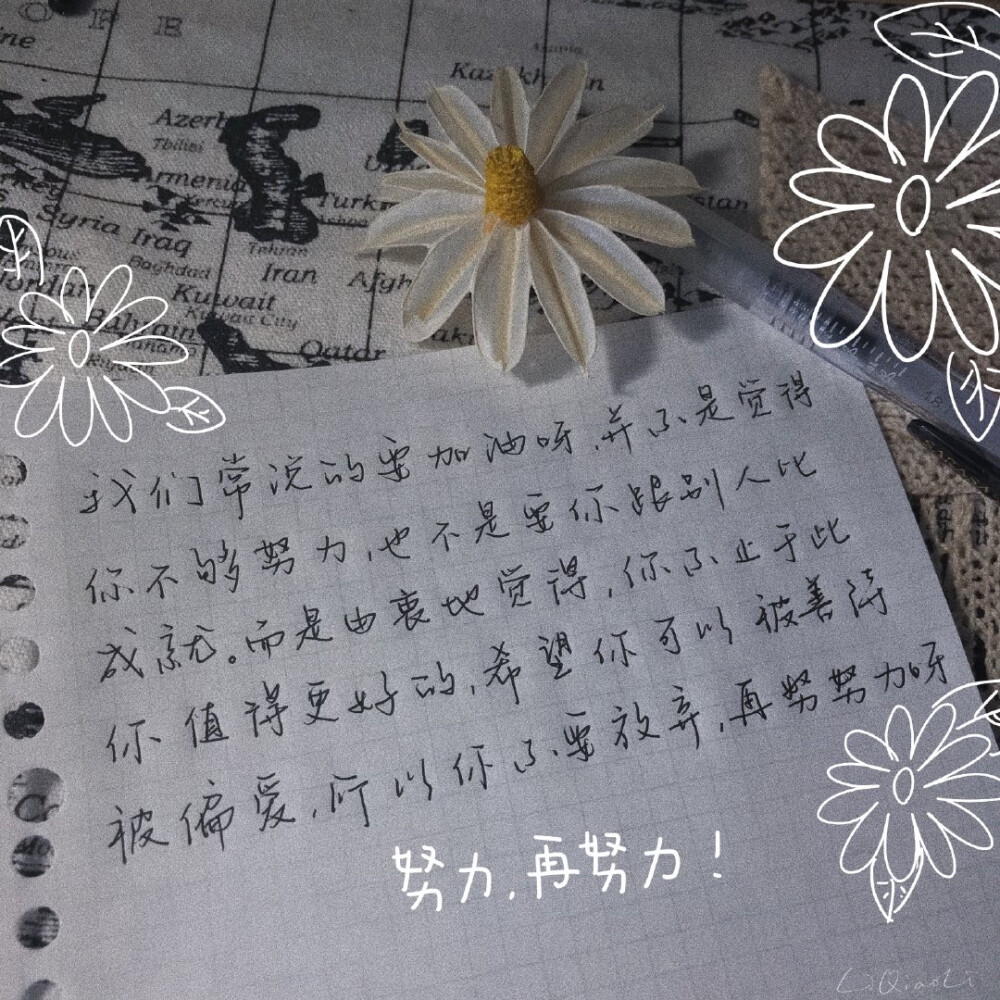 OPE
ine
Kazakh
Azerb
Tbilisi
Armenia
Turk
stan
Syria Iraq
Baghdad
Tehran
Iran
Afgh
Jordan
Kuwait
Kuwait City
Bahrain
Qatar
我们常说的要加油呀,并不是觉得
你不够努力,也不是要你跟别人比
成就。而是由衷地觉得,你不止于此
你值得更好的,希望你可以被善待
被偏爱,所以你不要放弃,再努努力呀
努力,再努力!
LiQiaoLi